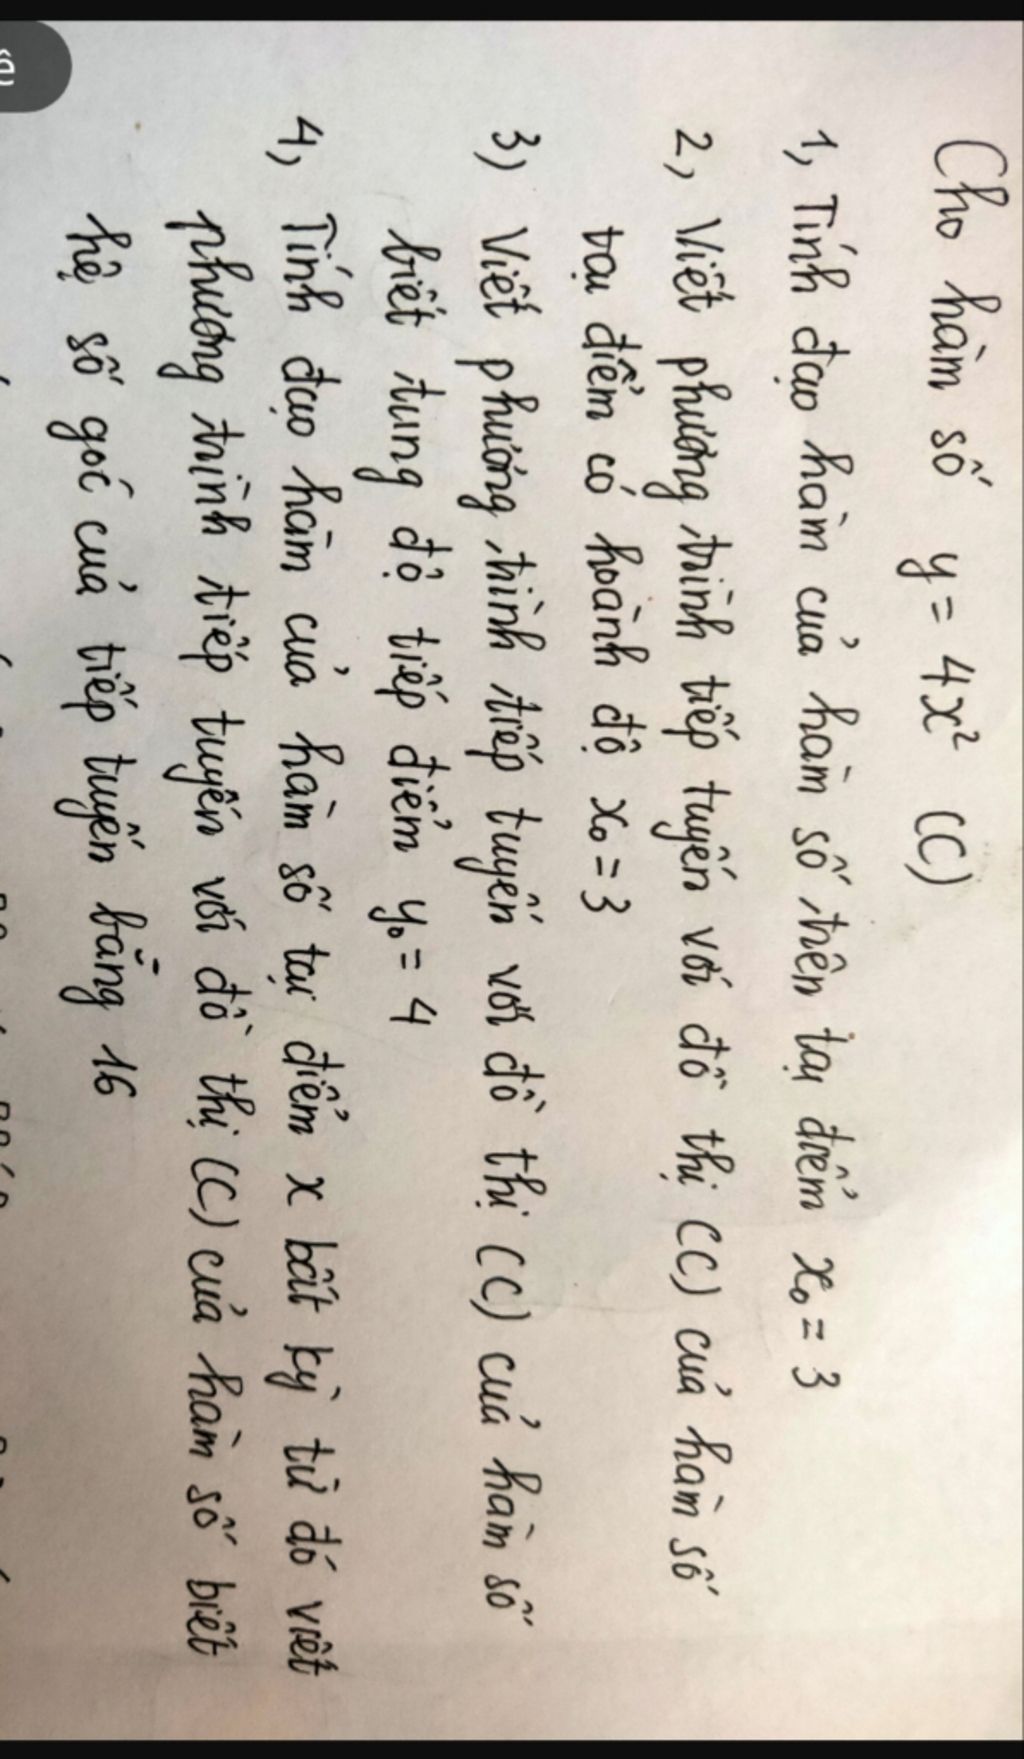 Cho hàm số y = 4x² (C)
1, Tính đạo hàm của hàm số trên tại điểm x₀ = 3
2, Viết phương trình tiếp tuyến với đồ thị (C) của hàm số
tại điểm có hoành độ x₀ = 3
3) Viết phương trình tiếp tuyến với đồ thị (C) của hàm số
biết tung độ tiếp điểm y₀ = 4
4, Tính đạo hàm của hàm số tại điểm x bất kỳ từ đó viết
phương trình tiếp tuyến với đồ thị (C) của hàm số biết
hệ số góc của tiếp tuyến bằng 16